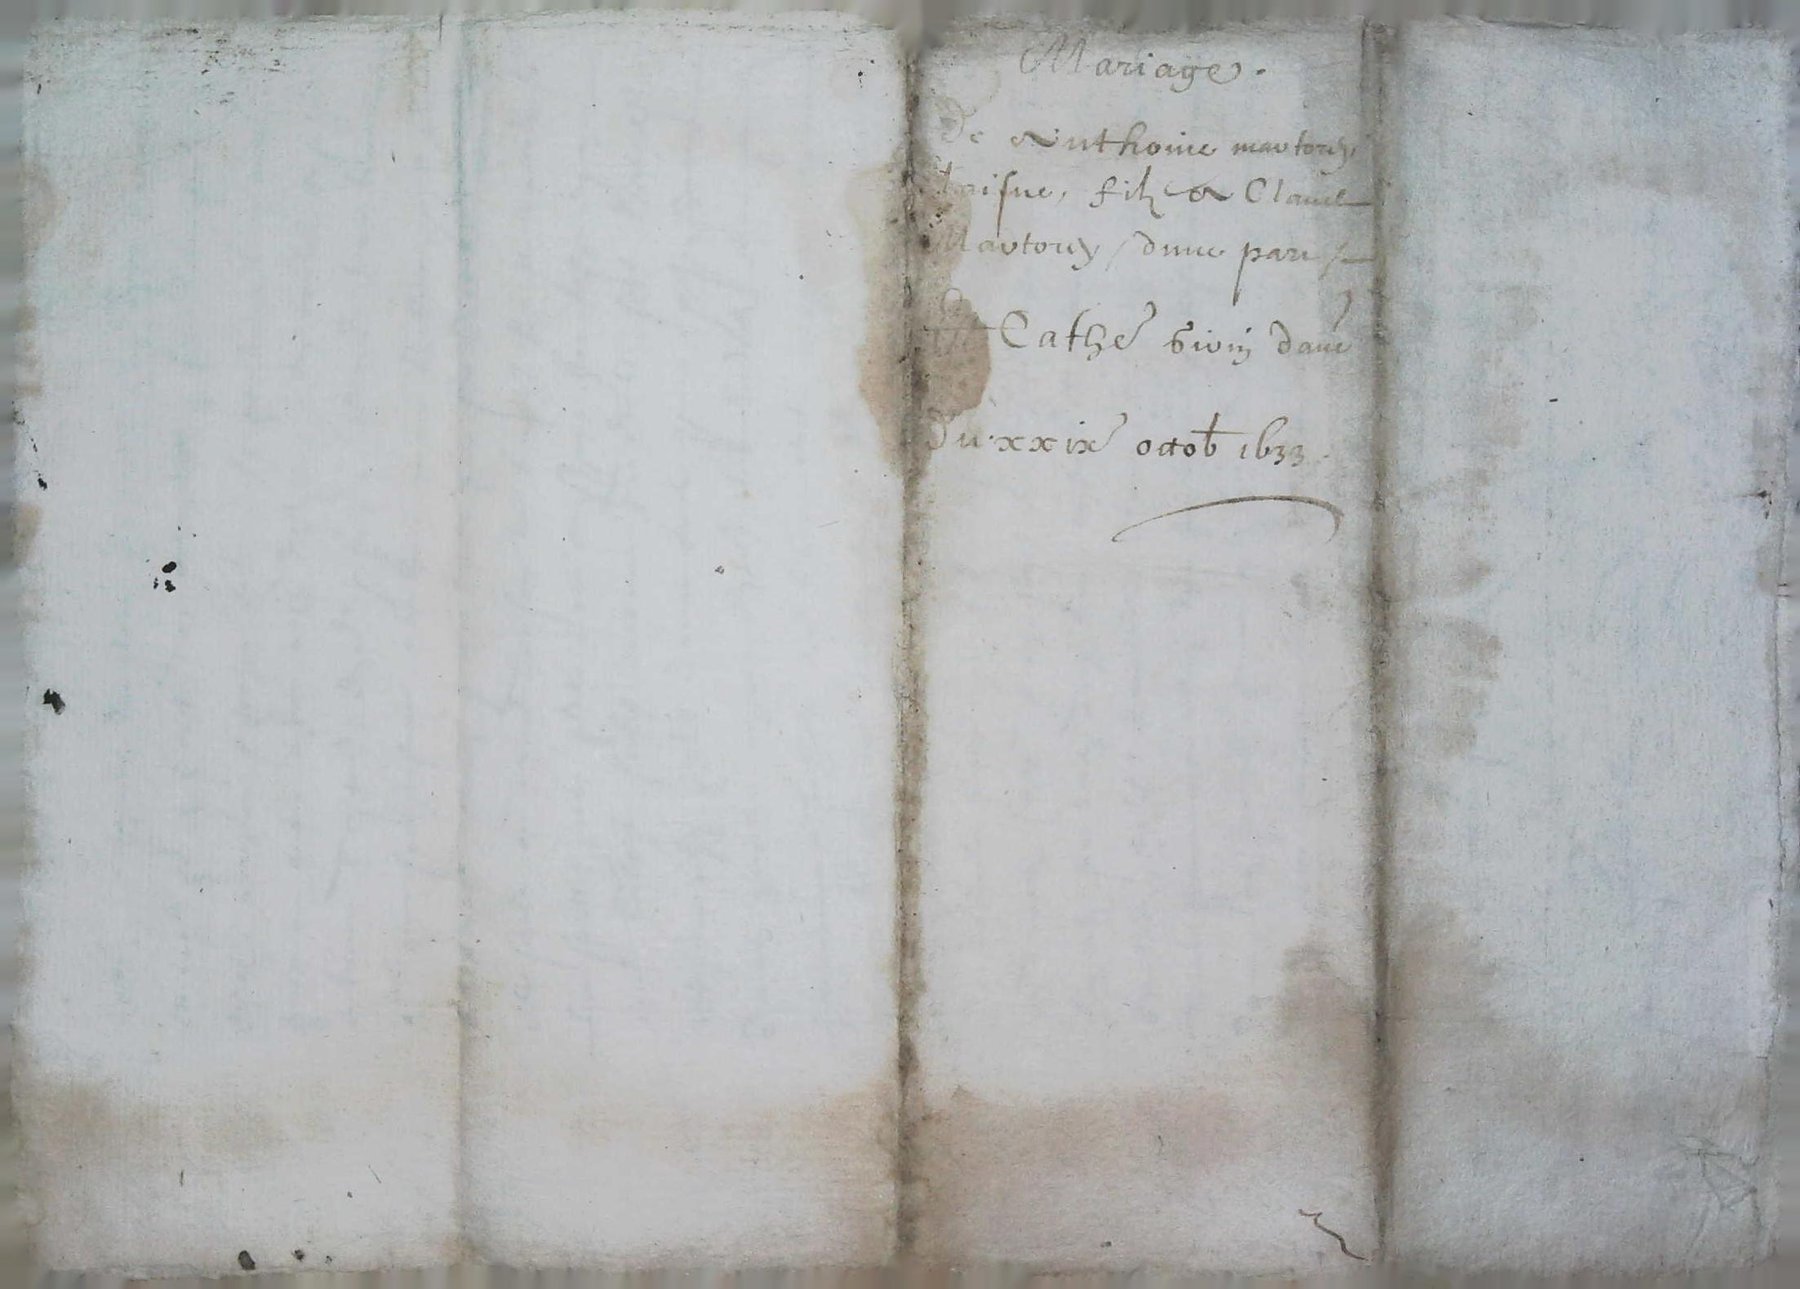 Mariage.
De Anthoine martouy
laisne, filz de Claude
Martouy / dune part /
Et Cathe^e d'au^e
Du xxix^e octob 1633.